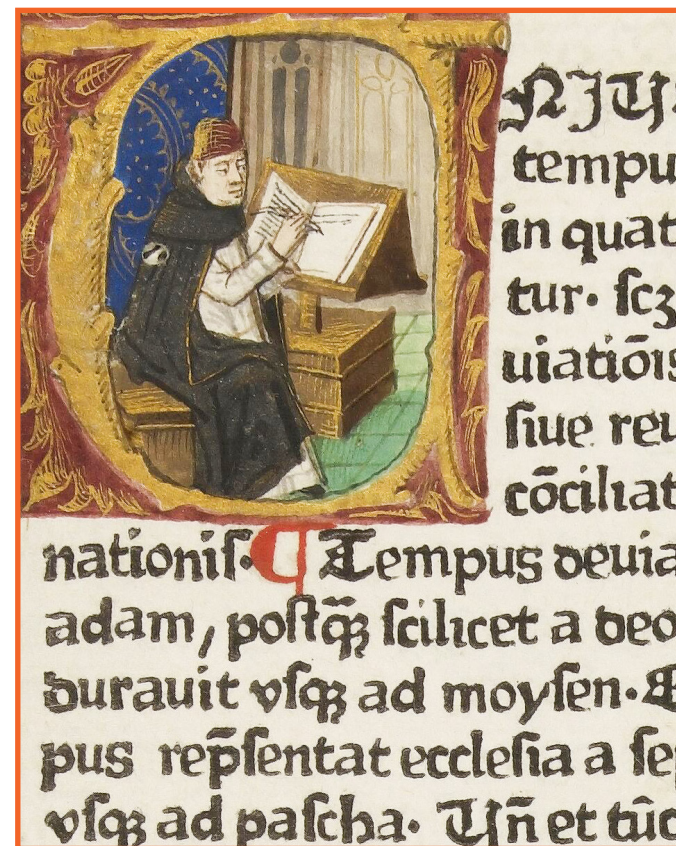 UNIU
tempu
in quat
tur· ſcꝫ
uiatiōis
ſiue reu
cōciliat
nationiſ· ¶ Tempus deuia
adam, poſtq̄ꝫ ſcilicet a deo
durauit vſqꝫ ad moyſen·
pus rep̄ſentat eccleſia a ſe
vſqꝫ ad paſcha· Un̄ et tūc